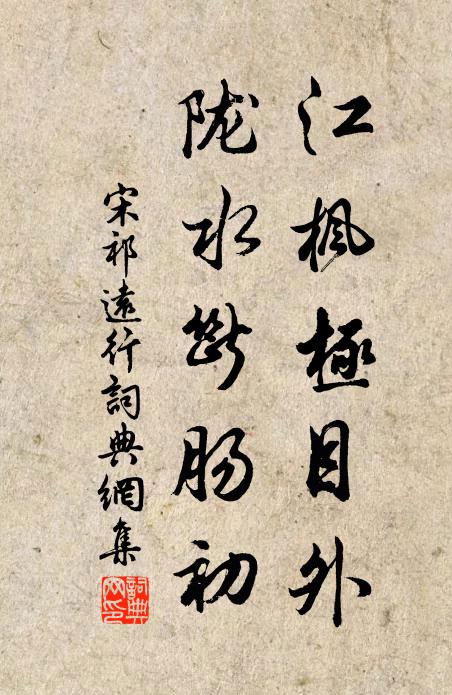 江枫極目外
陇水断肠初
宋祁遠行詞典網集
詞典網印